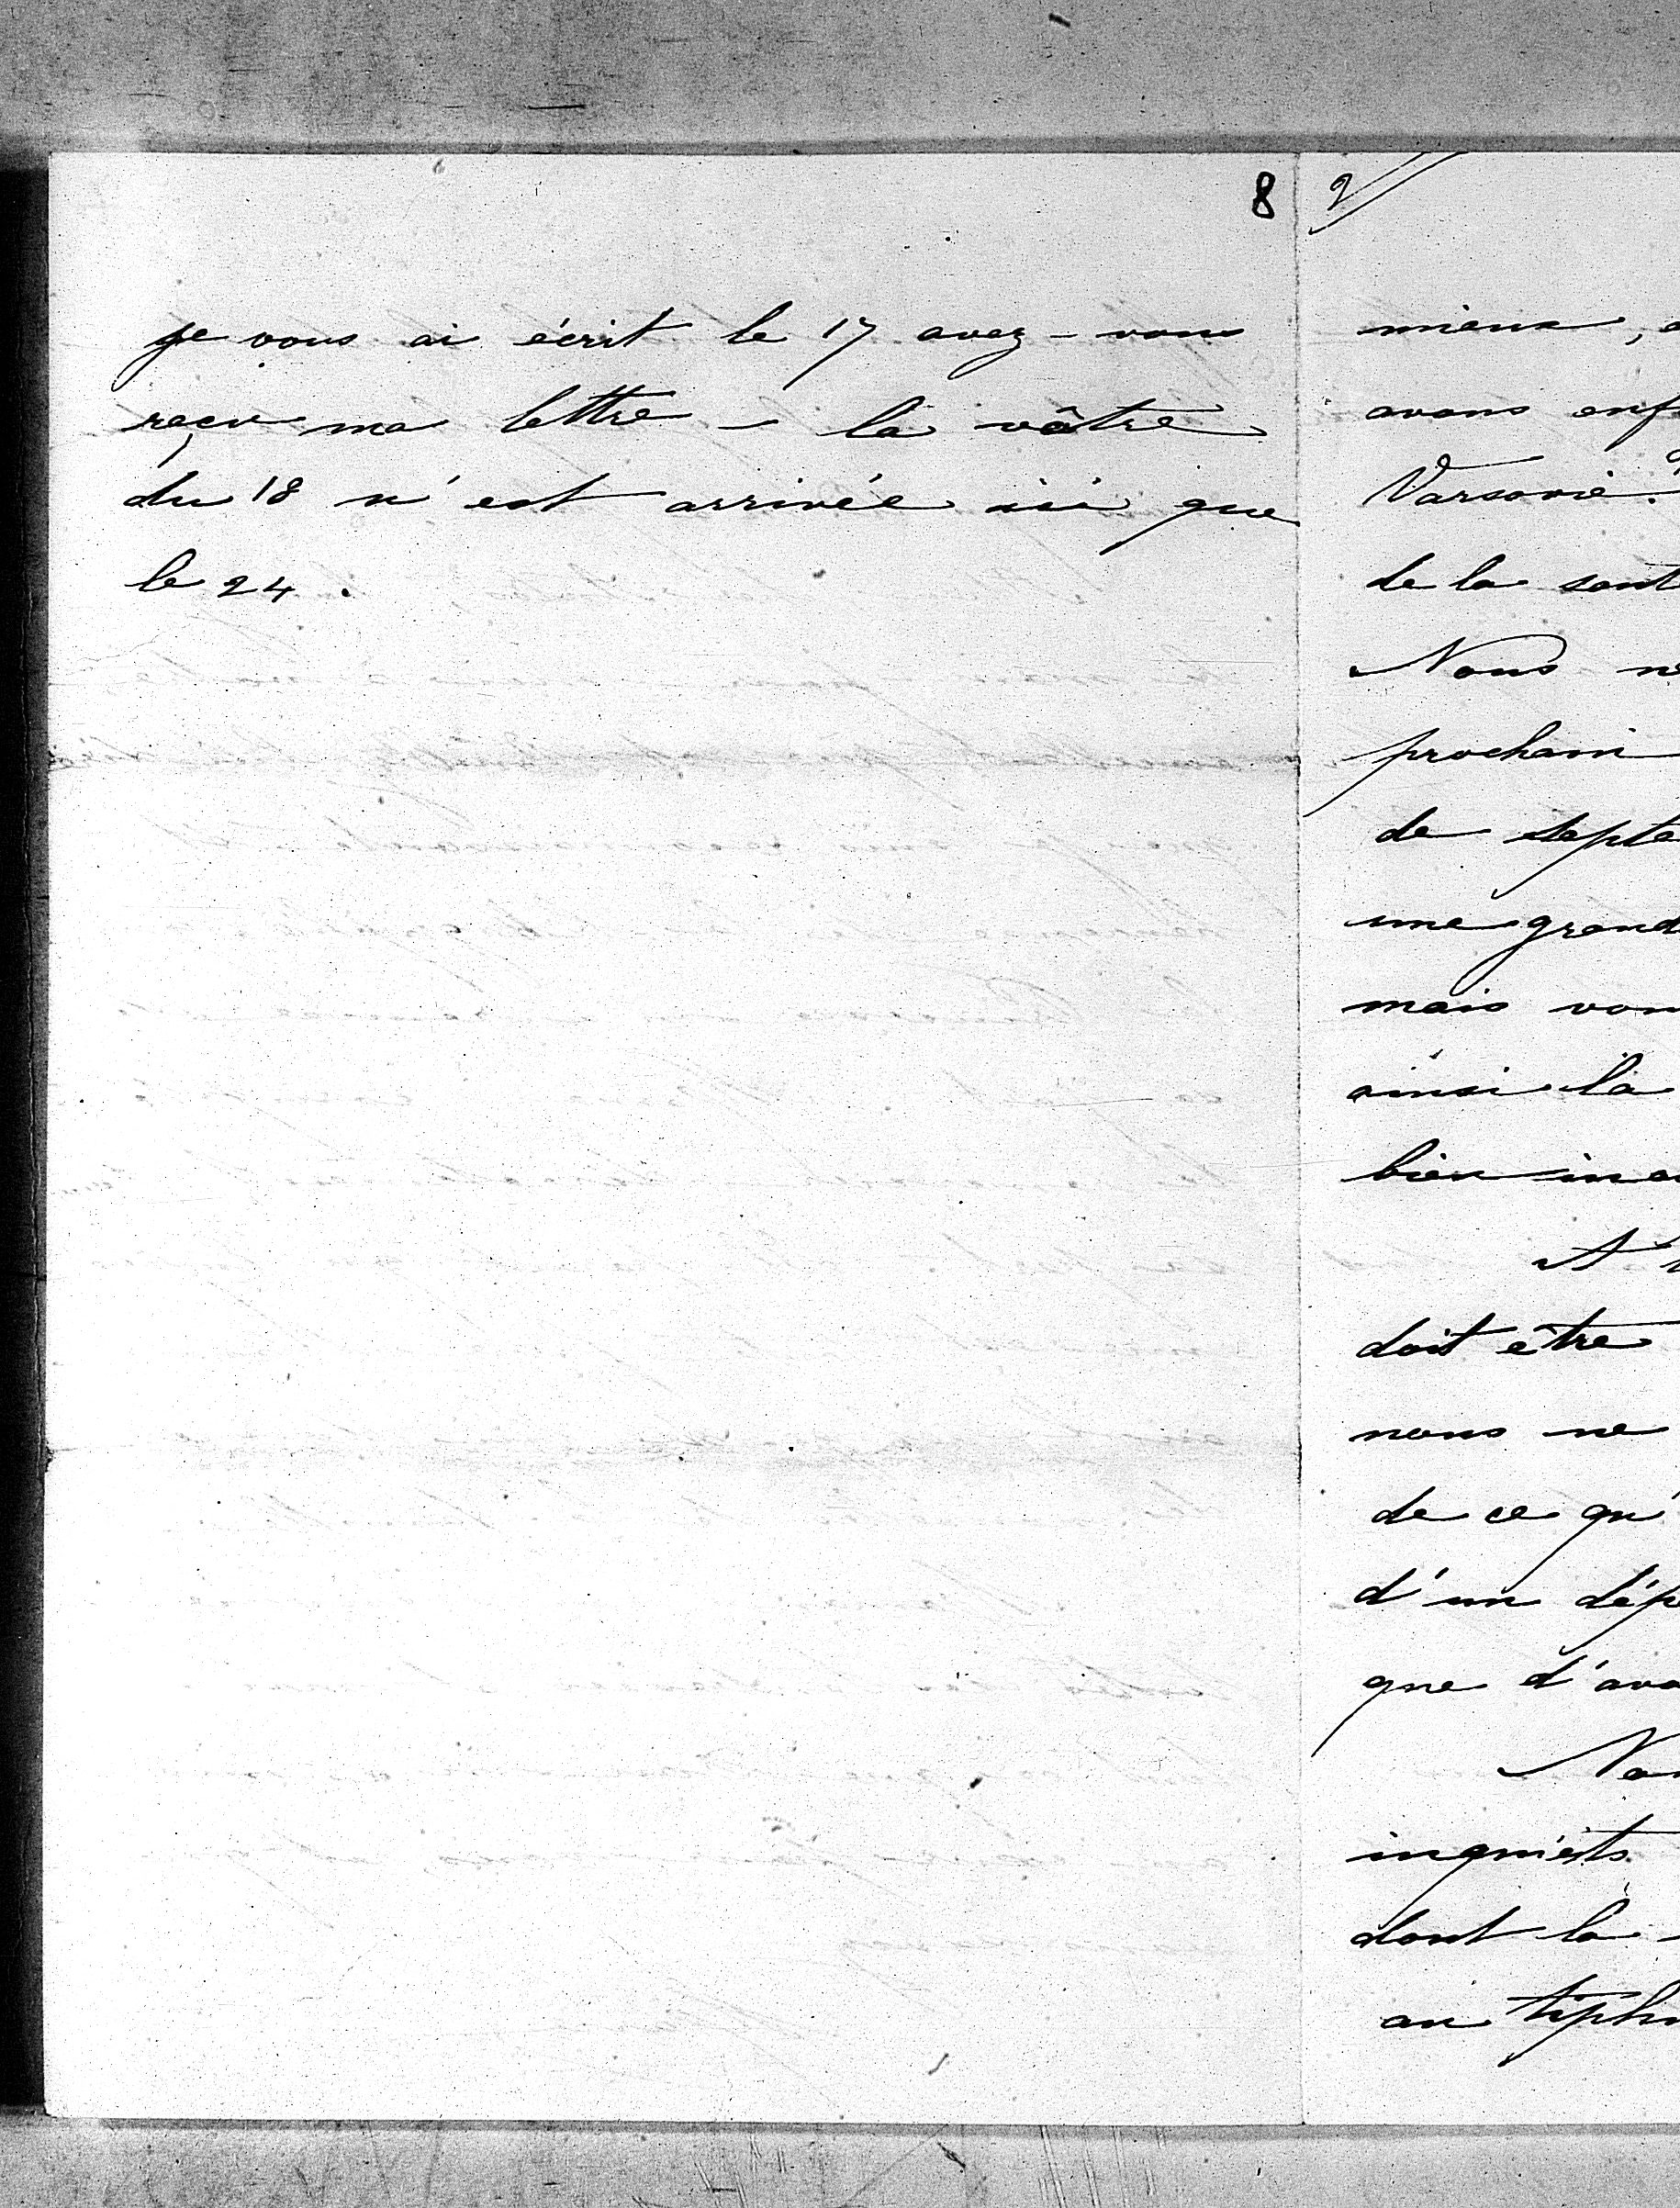 8
je vous ai écrit le 17 avez-vous
reçu ma lettre – la vôtre
du 18 n'est arrivée ici que
le 24.
2
mieux,
avons enf
Varsovie.
de la sant
Nous ne
prochain
de septe
une grand
mais vou
ainsi la
bien in
A
doit être
nous ne
de ce qu'
d'un dép
que d'avo
No
inquiets
dont la
au typh